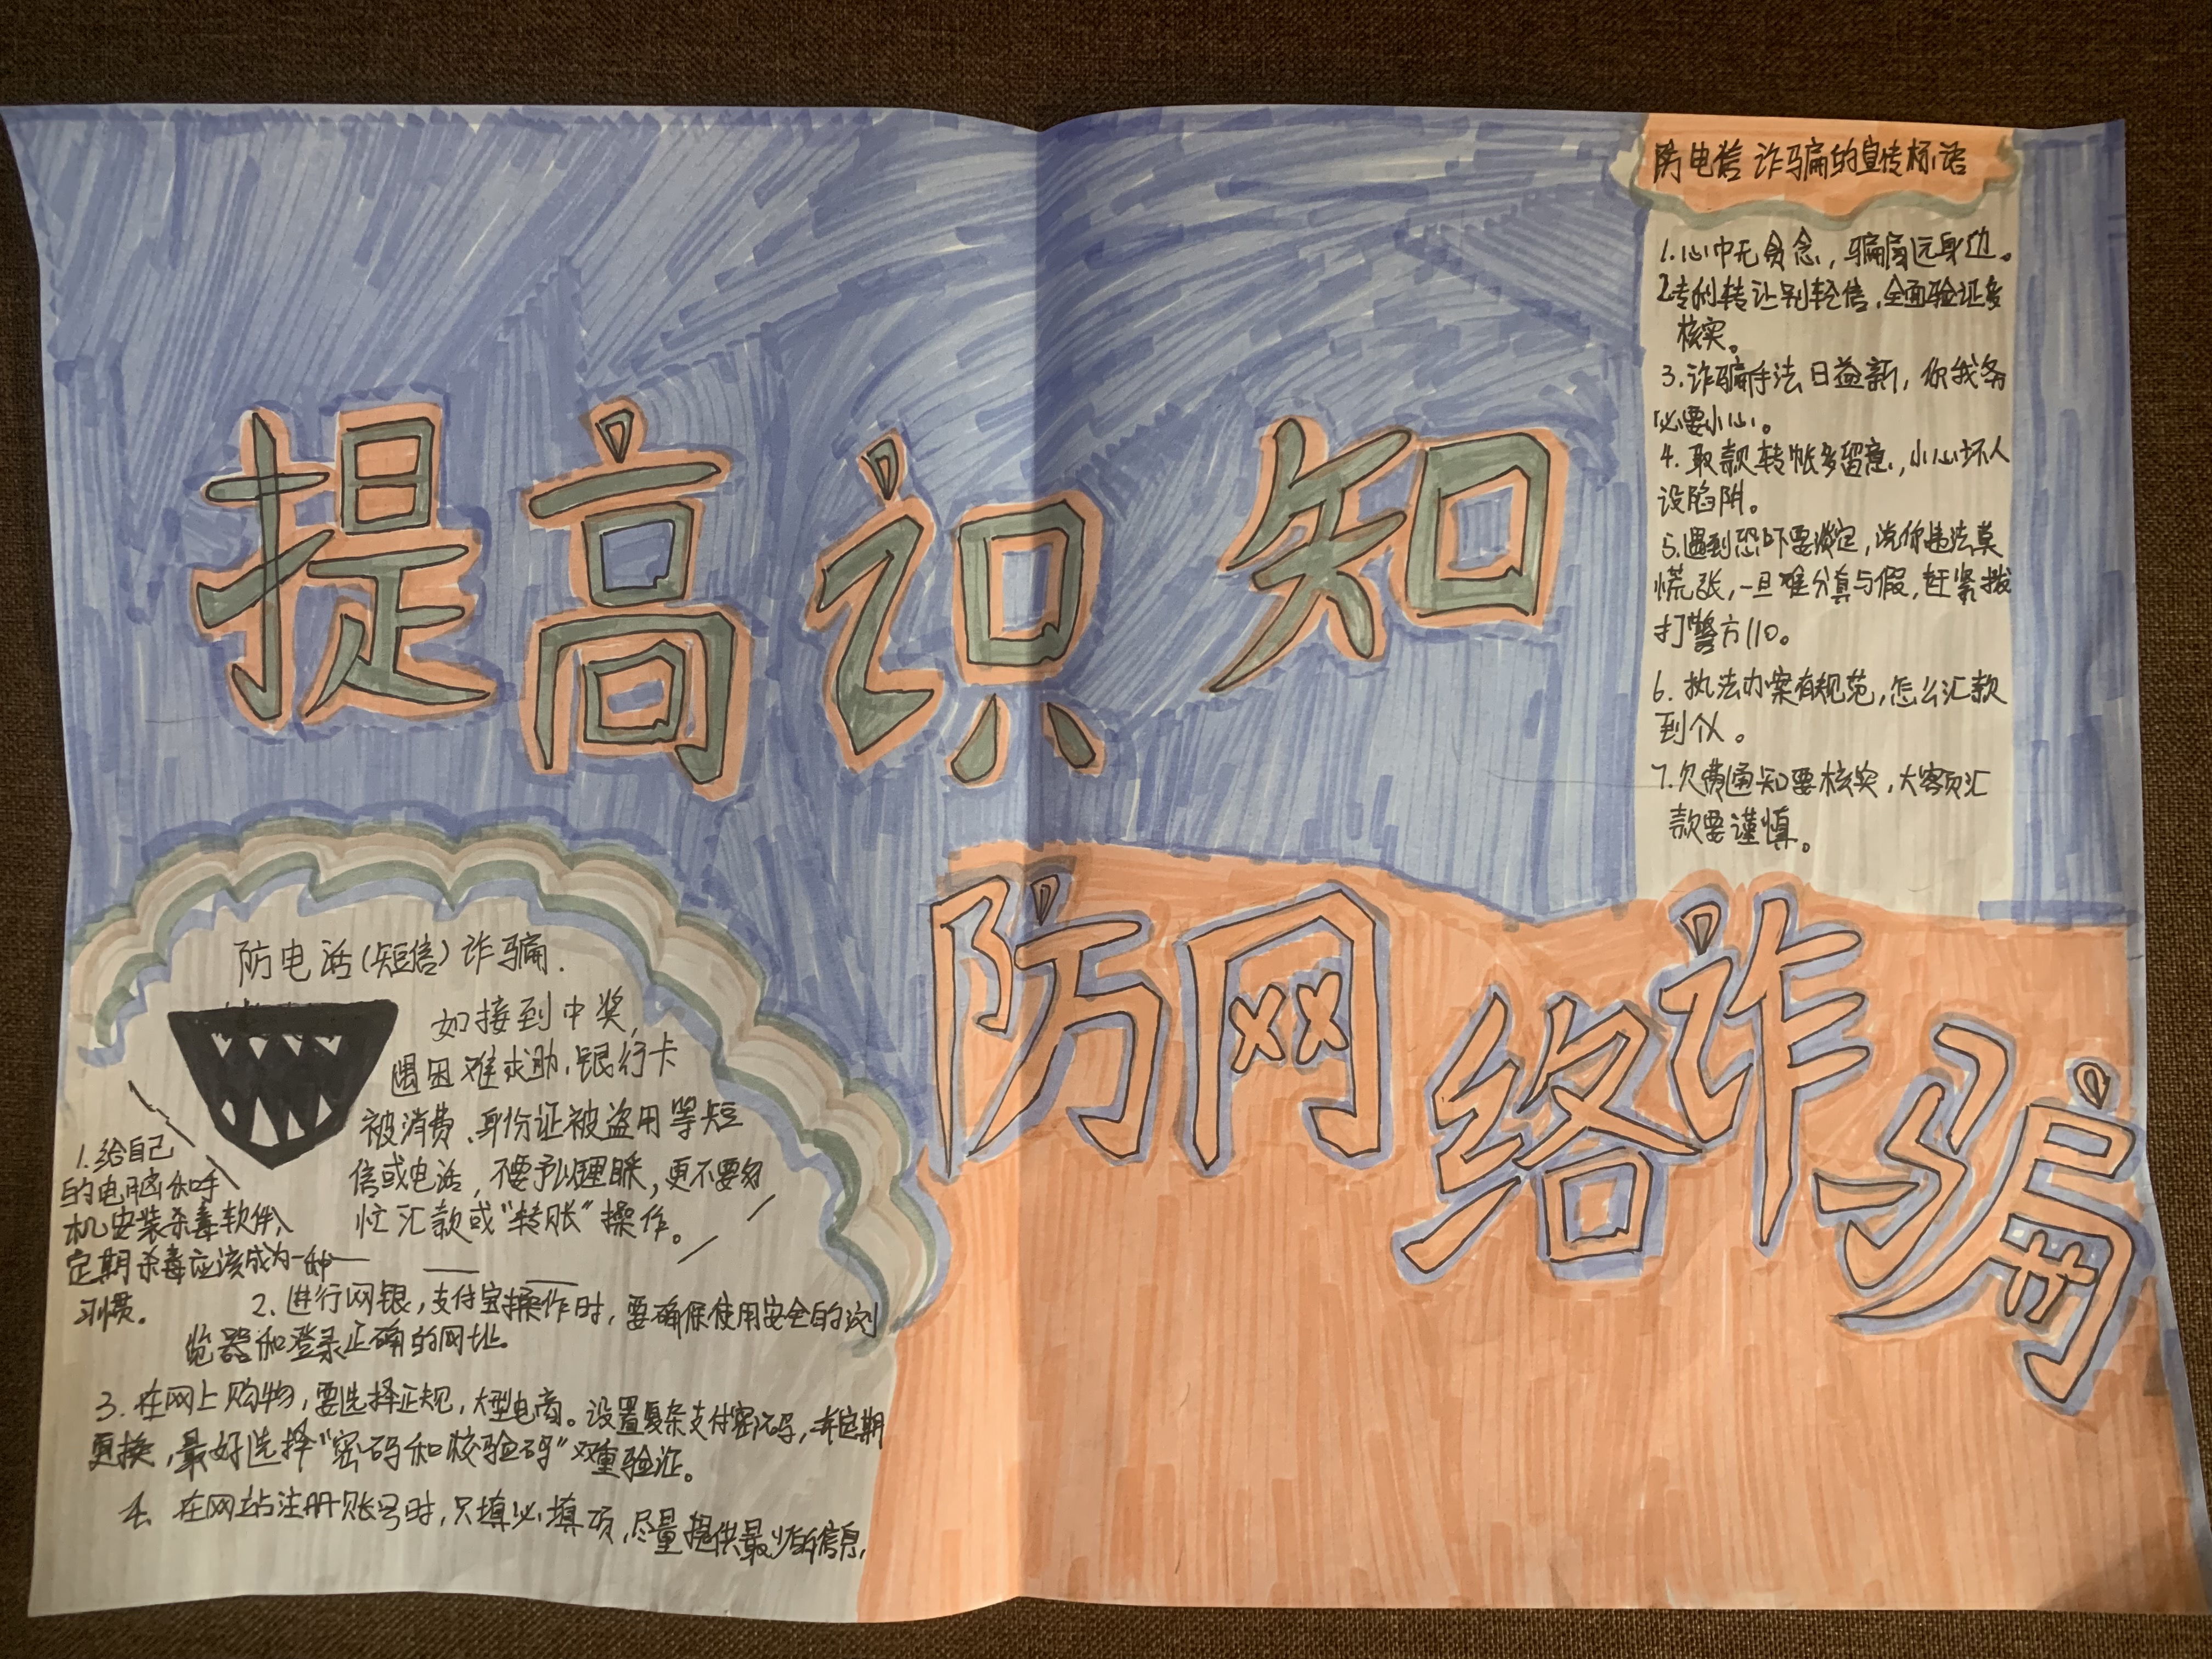 提高识知
防网络诈骗
防电信诈骗的宣传标语
1.心中无贪念，骗局远身边。
2专利转让别轻信，全面验证多
核实。
3.诈骗手法日益新，你我务
必要小心。
4.取款转帐多留意，小心坏人
设陷阱。
5.遇到恐吓要淡定，说你违法莫
慌张，一旦难分真与假，赶紧拨
打警方110。
6.执法办案有规范，怎么汇款
到个人。
7.欠费通知要核实，大额汇
款要谨慎。
防电话(短信)诈骗.
如接到中奖，
遇困难求助，银行卡
被消费、身份证被盗用等短
信或电话，不要予以理睬，更不要匆
忙汇款或"转账"操作。
1.给自己
的电脑和手
机安装杀毒软件、
定期杀毒应该成为一种
习惯。
2.进行网银，支付宝操作时，要确保使用安全的浏
览器和登录正确的网址。
3.在网上购物，要选择正规，大型电商。设置复杂支付密码，并定期
更换，最好选择"密码和校验码"双重验证。
4.在网站注册账号时，只填必填项，尽量提供最少的信息，